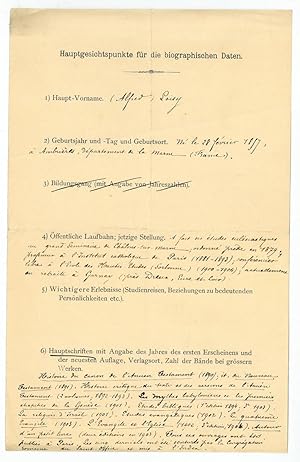 Hauptgesichtspunkte für die biographischen Daten.
1) Haupt-Vorname. (Alfred) Loisy
2) Geburtsjahr und -Tag und Geburtsort. Né le 28 février 1857,
à Ambrières, département de la Marne (France).
3) Bildungsgang (mit Angabe von Jahreszahlen).
4) Öffentliche Laufbahn; jetzige Stellung. A fait ses études ecclésiastiques
au grand séminaire de Châlons-sur-Marne, ordonné prêtre en 1879,
professeur à l'Institut catholique de Paris (1881-1893), conférencier
libre à l'École des Hautes Études (Sorbonne) (1900-1904); actuellement
en retraite à Garnay (près Dreux, Eure-et-Loir)
5) Wichtigere Erlebnisse (Studienreisen, Beziehungen zu bedeutenden
Persönlichkeiten etc.).
6) Hauptschriften mit Angabe des Jahres des ersten Erscheinens und
der neuesten Auflage, Verlagsort, Zahl der Bände bei grössern
Werken.
Histoire du canon de l'Ancien Testament (1890), et du Nouveau
Testament (1891). Histoire critique du texte et des versions de l'Ancien
Testament (2 volumes, 1892-1893). Les mythes babyloniens et les premiers
chapitres de la Genèse (1901). Études bibliques
La religion d'Israël (1901). Études évangéliques (1902). Le quatrième
Évangile (1903). L'Évangile et l'Église Autour
d'un petit livre Tous ces ouvrages ont été
publiés à Paris. Les cinq derniers ont été par la Congrégation
romaine du Saint-Office